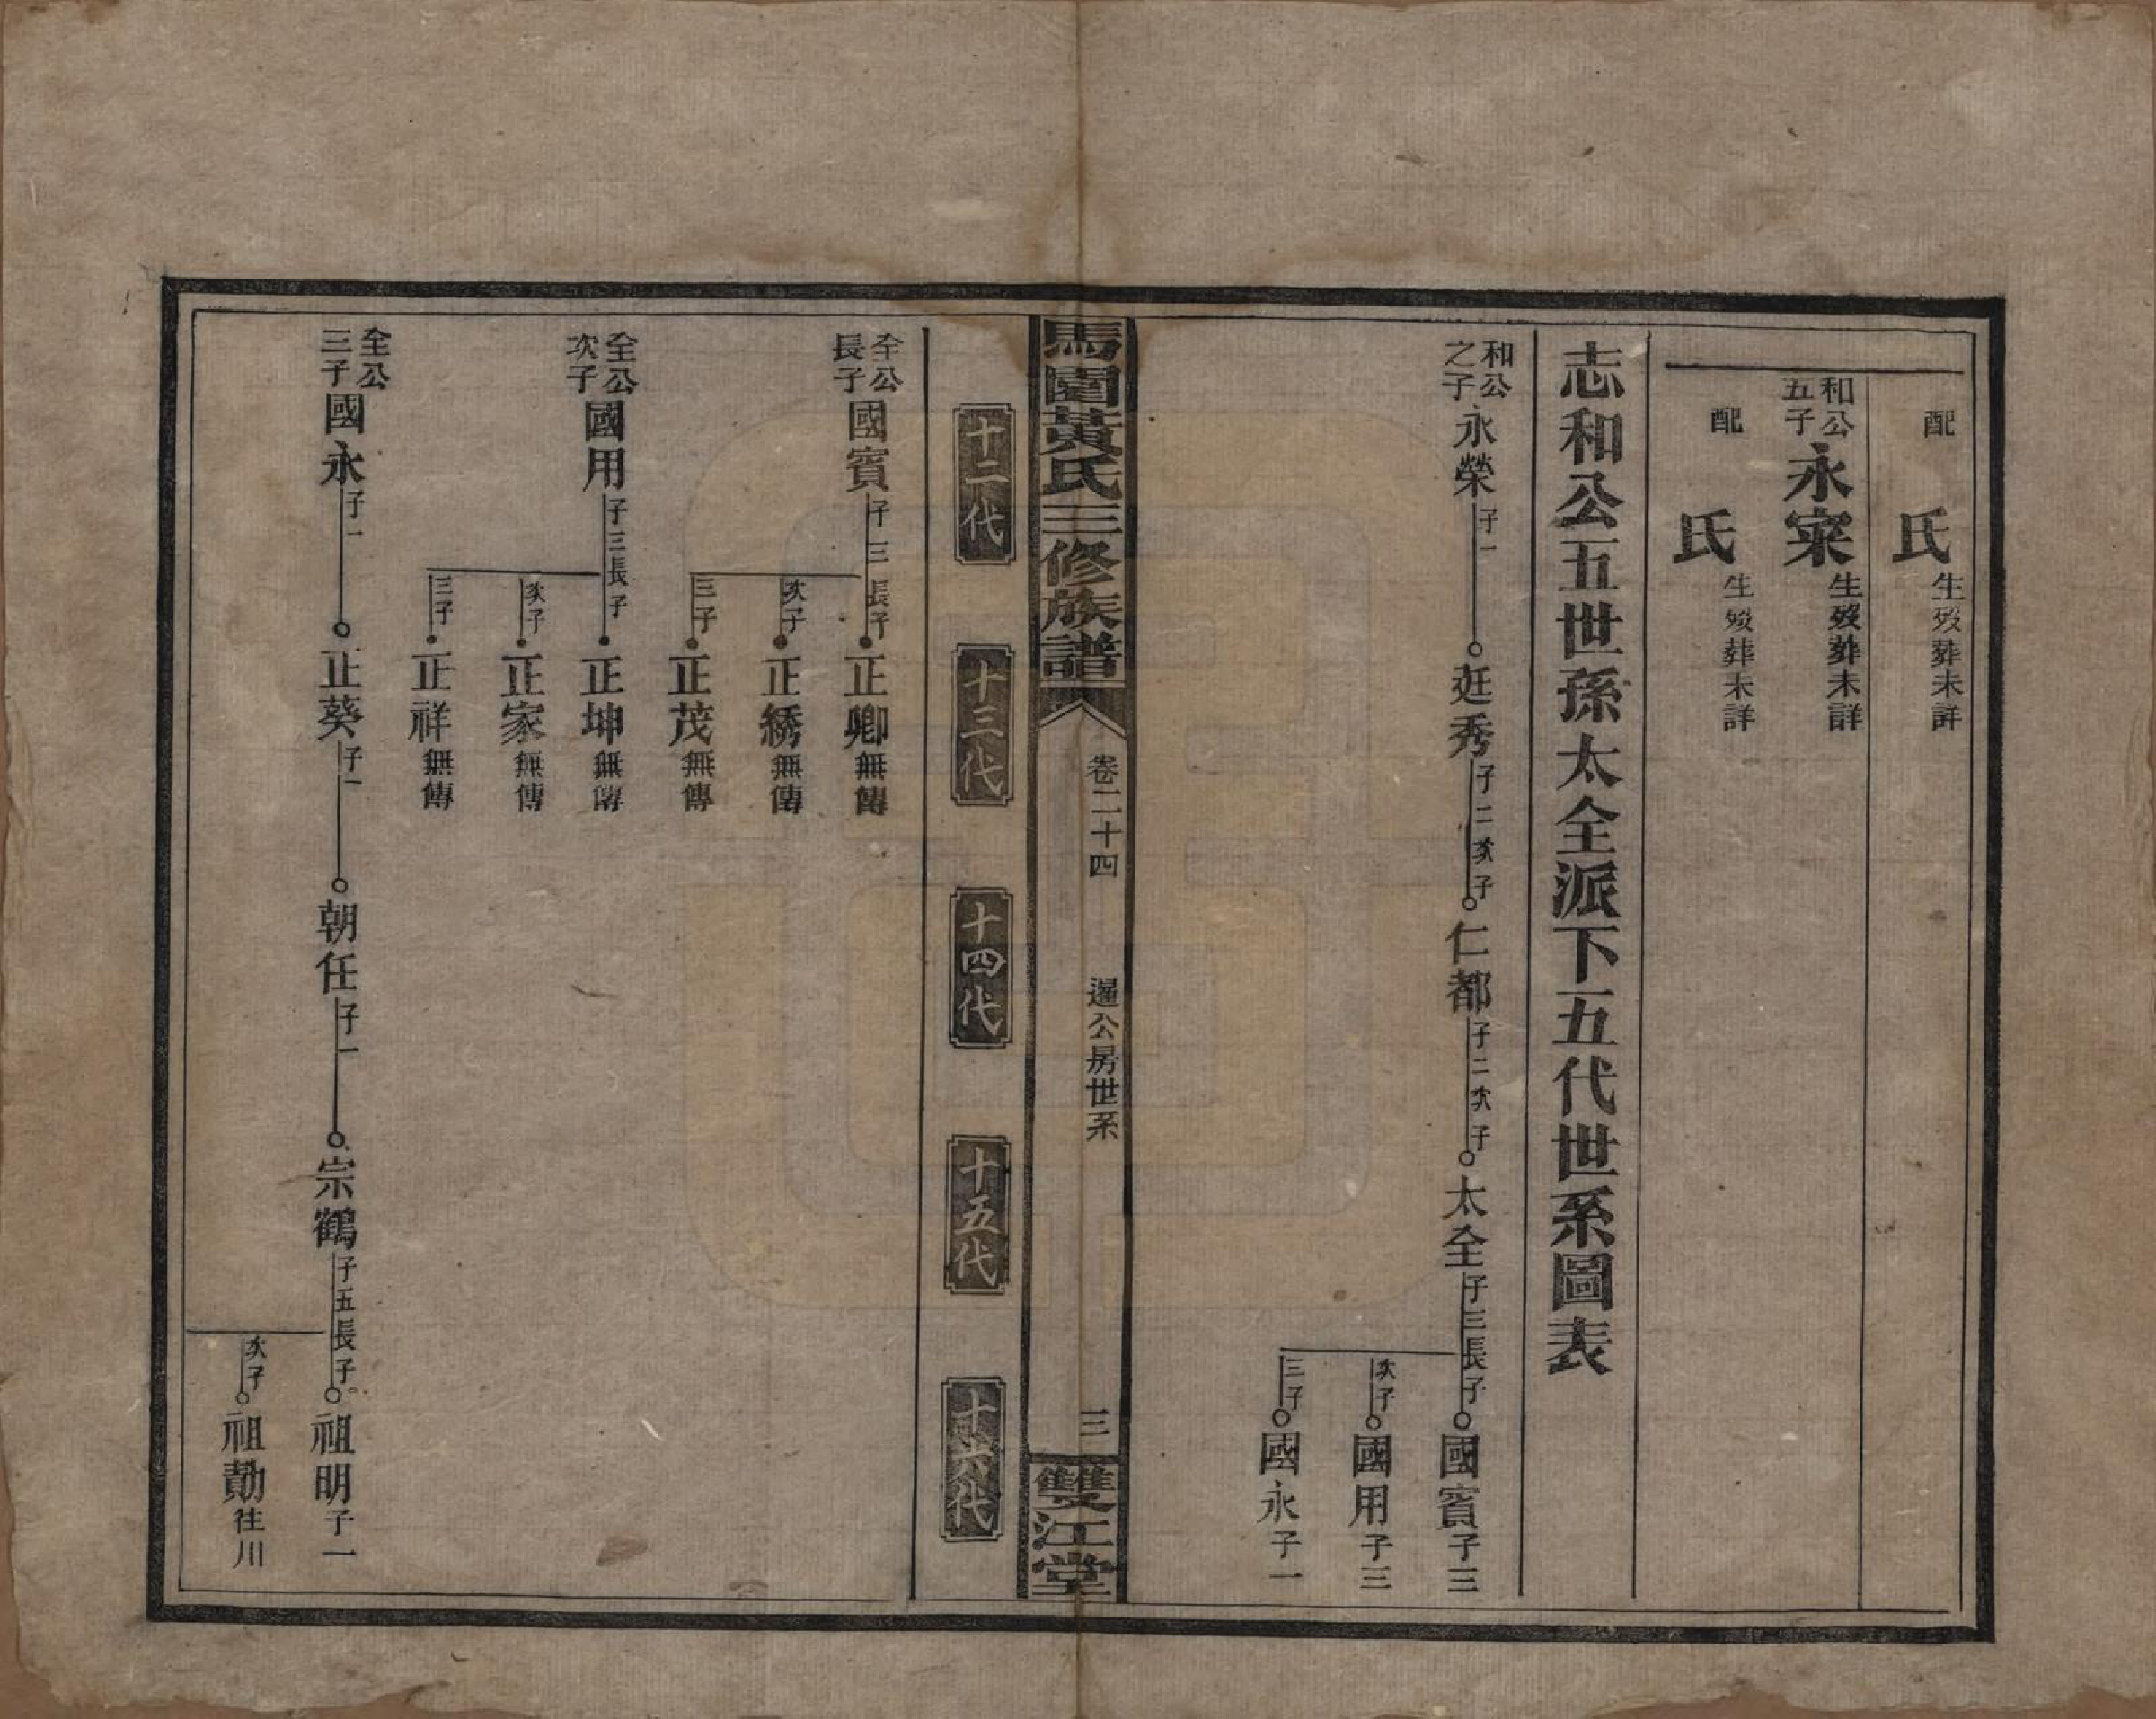 配 氏 生歿葬未詳
和公五子 永寀 生歿葬未詳
配 氏 生歿葬未詳
志和公五世孫太全派下五代世系圖表
和公之子 永榮 子一 廷秀 子二 次子 仁都 子二 次子 太全 子三 長子 國賓 子三
次子 國用 子三
三子 國永 子一
馬園黃氏三修族譜 卷二十四 暹公房世系 三 雙江堂
十二代 十三代 十四代 十五代 十六代
全公長子 國賓 子三 長子 正卿 無傳
次子 正綉 無傳
三子 正茂 無傳
全公次子 國用 子三 長子 正坤 無傳
次子 正家 無傳
三子 正祥 無傳
全公三子 國永 子一 正葵 子一 朝任 子一 宗鶴 子五 長子 祖明 子一
次子 祖勣 往川